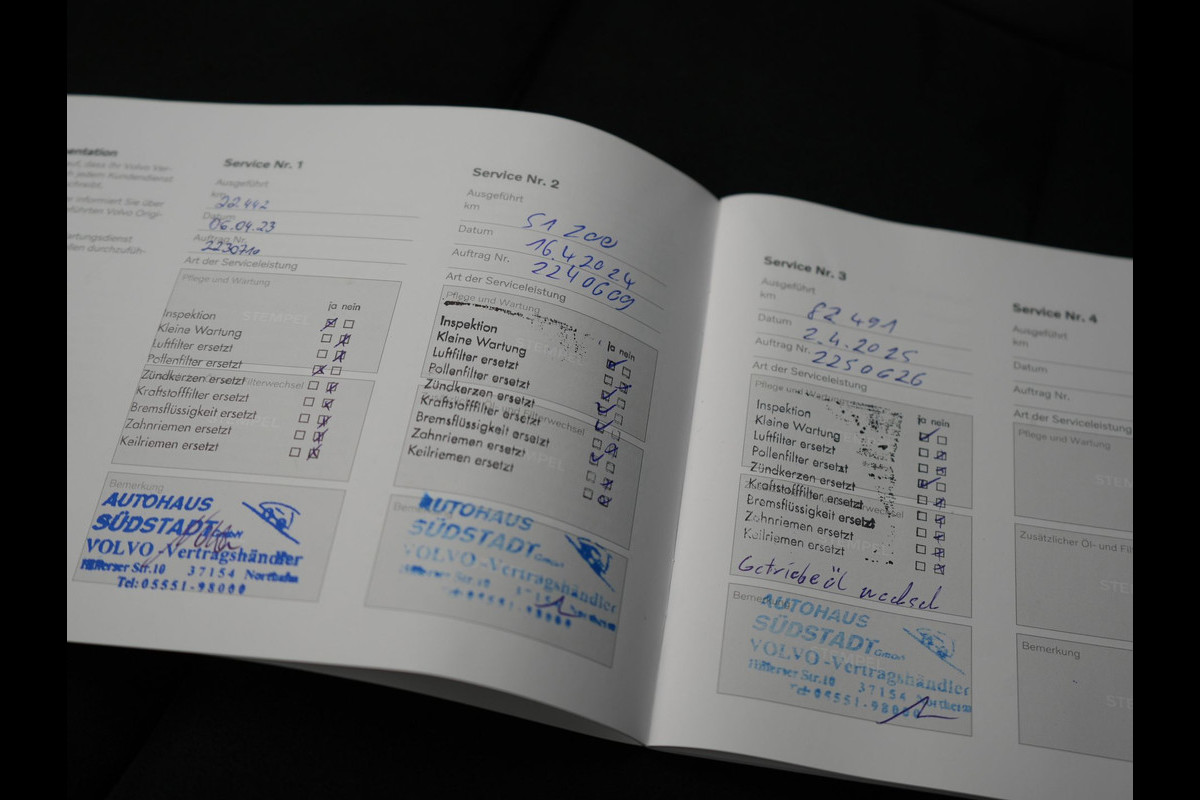 entation
Service Nr. 1
Ausgeführt
km 22.442
Datum 06.04.23
Auftrag Nr. 2230710
Art der Serviceleistung
Pflege und Wartung
STEMPEL
ja nein
Inspektion
Kleine Wartung
Luftfilter ersetzt
Pollenfilter ersetzt
Zündkerzen ersetzt
Kraftstofffilter ersetzt
Bremsflüssigkeit ersetzt
Zahnriemen ersetzt
Keilriemen ersetzt
Bemerkung
AUTOHAUS
SÜDSTADT GmbH
VOLVO-Vertragshändler
Hillerser Str.10 37154 Northeim
Tel: 05551-98000
Service Nr. 2
Ausgeführt
km 51 200
Datum 16.4.2024
Auftrag Nr. 2240609
Art der Serviceleistung
Pflege und Wartung
ja nein
Inspektion
Kleine Wartung
Luftfilter ersetzt
Pollenfilter ersetzt
Zündkerzen ersetzt
Kraftstofffilter ersetzt
Bremsflüssigkeit ersetzt
Zahnriemen ersetzt
Keilriemen ersetzt
AUTOHAUS
SÜDSTADT GmbH
VOLVO-Vertragshändler
Service Nr. 3
Ausgeführt
km 82 491
Datum 2.4.2025
Auftrag Nr. 2250626
Art der Serviceleistung
Pflege und Wartung
ja nein
Inspektion
Kleine Wartung
Luftfilter ersetzt
Pollenfilter ersetzt
Zündkerzen ersetzt
Kraftstofffilter ersetzt
Bremsflüssigkeit ersetzt
Zahnriemen ersetzt
Keilriemen ersetzt
Getriebeöl wechsel
Bemerkung
AUTOHAUS
SÜDSTADT GmbH
VOLVO-Vertragshändler
Hillerser Str.10 37154 Northeim
Tel: 05551-98000
Service Nr. 4
Ausgeführt
km
Datum
Auftrag Nr.
Art der Serviceleistung
Pflege und Wartung
STE
Zusätzlicher Öl- und Fil
STE
Bemerkung
STE